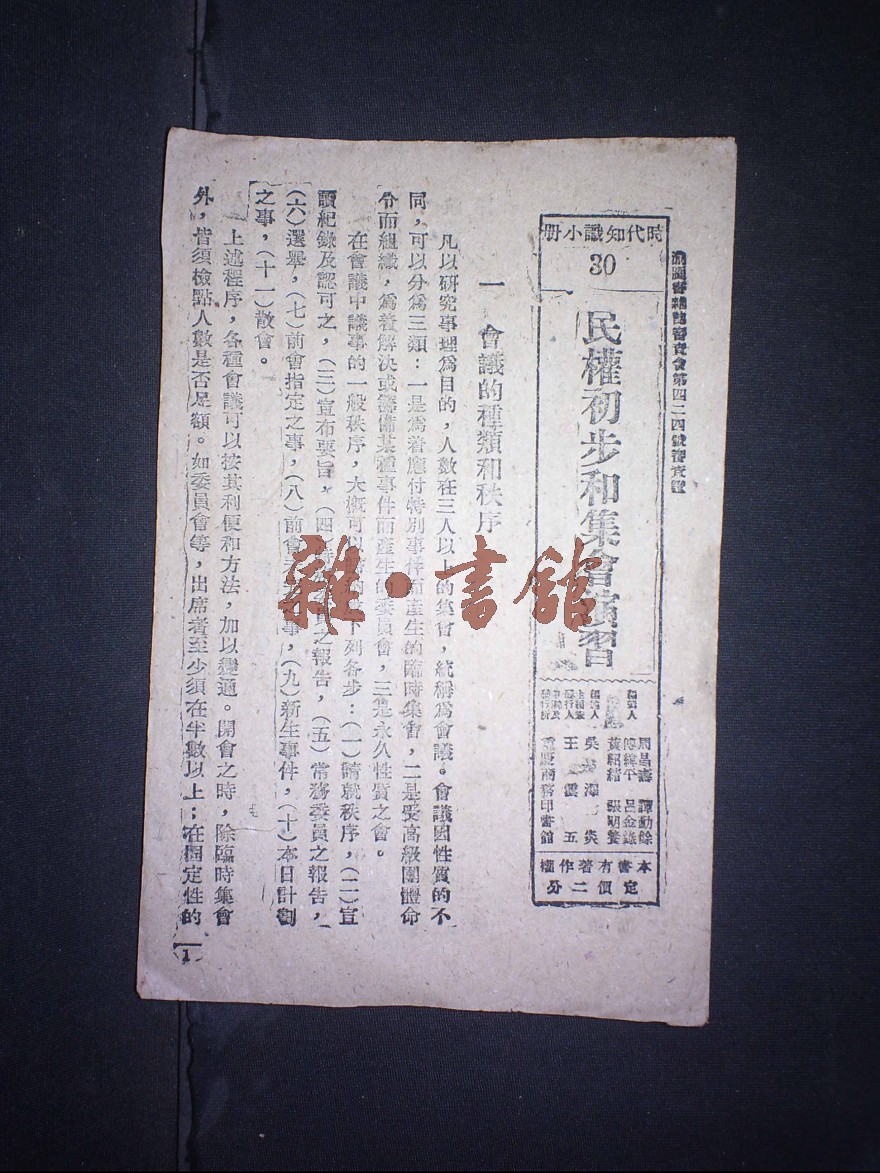 時代知識小册
30
民權初步和集會演習
王雲五
重慶商務印書館
本書有著作權
定價二分
一 會議的種類和秩序
凡以研究事理爲目的，人數在三人以上的集會，統稱爲會議。會議因性質的不
同，可以分爲三類：一是爲着應付特別事件而產生的臨時集會，二是受高級團體命
令而組織，爲着解決或籌備某種事件而產生的委員會，三是永久性質之會。
在會議中議事的一般秩序，大概可以下列各步：（一）請就秩序，（二）宣
讀紀錄及認可之，（三）宣布要旨，（四）之報告，（五）常務委員之報告，
（六）選舉，（七）前會指定之事，（八）前會事，（九）新生事件，（十）本日計劃
之事，（十一）散會。
上述程序，各種會議可以按其利便和方法，加以變通。開會之時，除臨時集會
外，皆須檢點人數是否足額。如委員會等，出席者至少須在半數以上；在固定性的
1
雜·書館